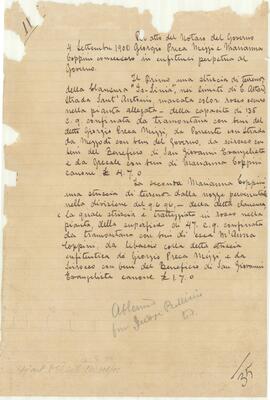 11
Per atto del Notaro del Governo
4 Settembre 1900 Giorgio Preca Mizzi e Marianna
Coppini concessero in enfiteusi perpetua al
Governo.
Il Primo una striscia di terreno
della blansura "Is-Sinia", nei limiti di C. Attard
Strada Sant' Antonio, marcata color rosso scuro
nella pianta allegata, della capacita di 135
c.q. confinata da tramontana con beni del
detto Giorgio Preca Mizzi, da Ponente con strada
da Mezzodi con beni del Governo, da scirocco con
beni del Beneficio di San Giovanni Evangelista
e da Grecale con beni di Marianna Coppini
canone £ 4.7.0
La seconda Marianna Coppini,
una striscia di terreno dalla
nella divisione del detta clausura
la quale striscia è tratteggiata in rosso nella
pianta, della superficie di 47. c.q. confinata
da tramontana con beni di essa
Coppini, da Libeccio colla detta striscia
enfiteutica di Giorgio Preca Mizzi e da
Scirocco con beni del Beneficio di San Giovanni
Evangelista canone £ 1.7.0
for
35